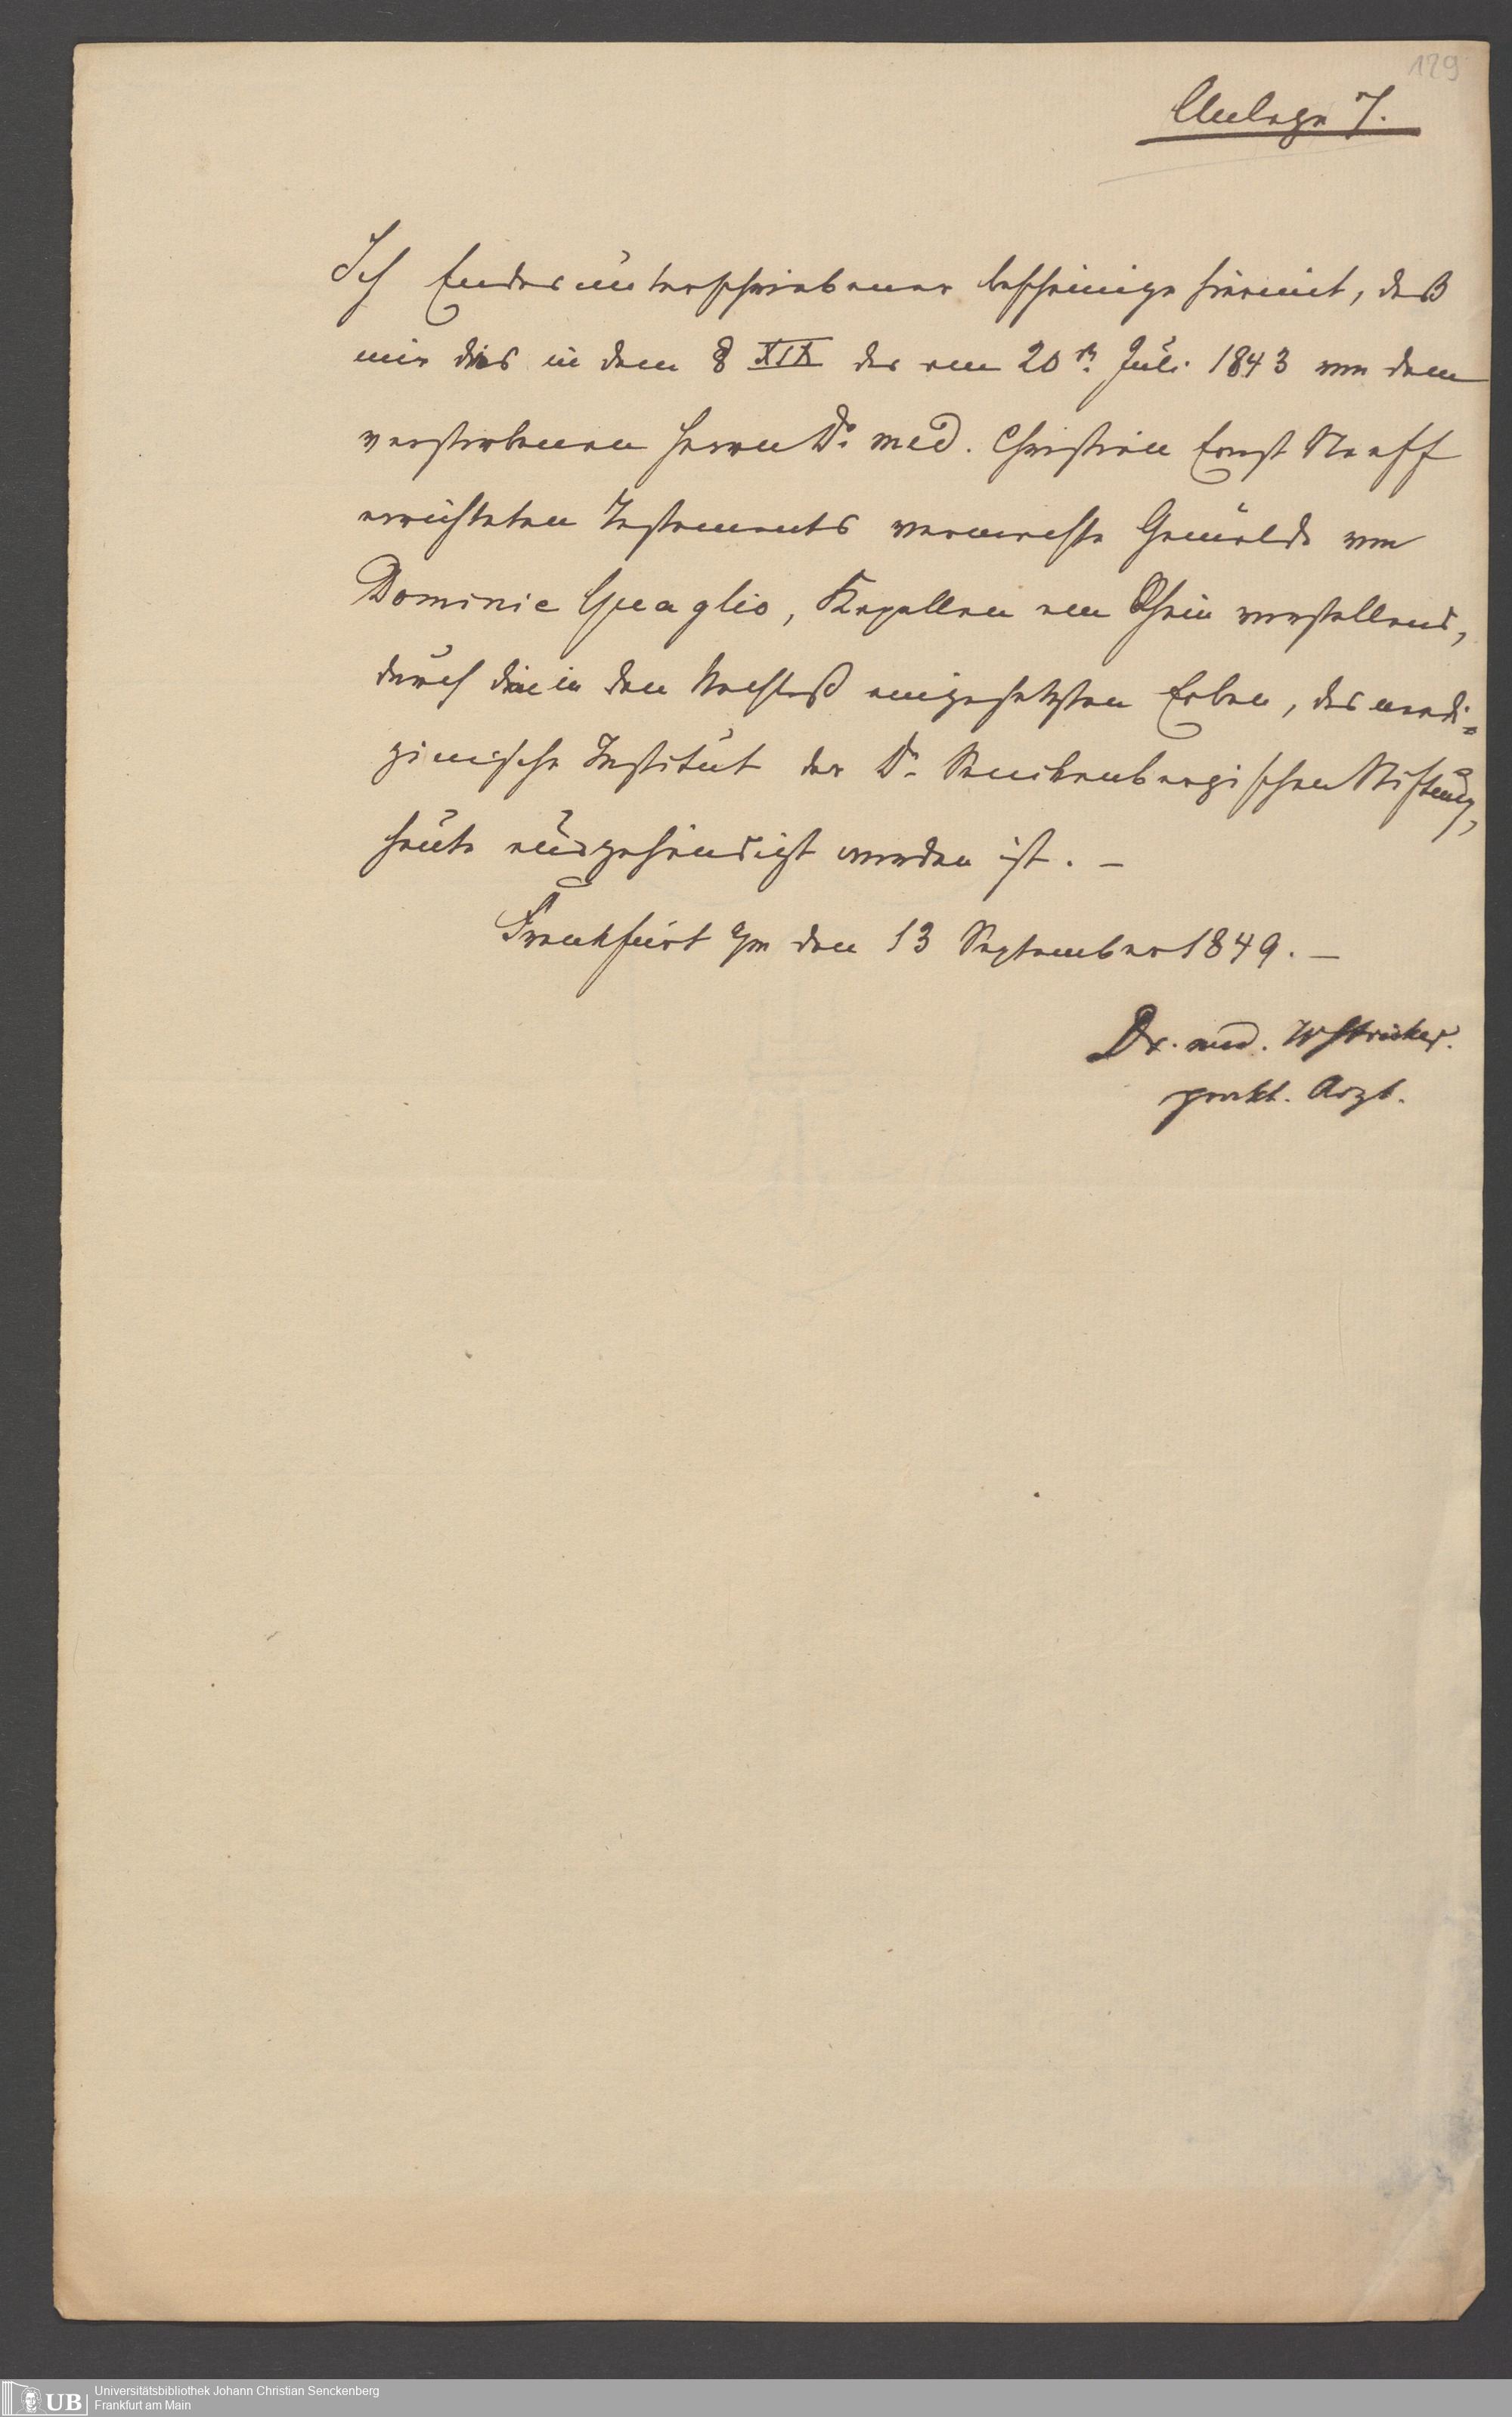 129
Anlage 7.
Ich Endesunterschriebener bescheinige hiermit, daß
mir das in dem § XIX des am 20n. Juli 1843 von dem
verstorbenen Herrn Dr. med. Christian Ernst Neeff
errichteten Testaments vermachte Gemälde von
Dominic Quaglio, Kapellen am Rhein vorstellend,
durch die in den Nachlaß eingesetzten Erben, das medi=
zinische Institut der Dr. Senckenbergischen Stiftung,
heute ausgehändigt worden ist. —
Frankfurt a/m den 13 September 1849. —
Dr. med. W Stricker.
prakt. Arzt.
UB
Universitätsbibliothek Johann Christian Senckenberg
Frankfurt am Main